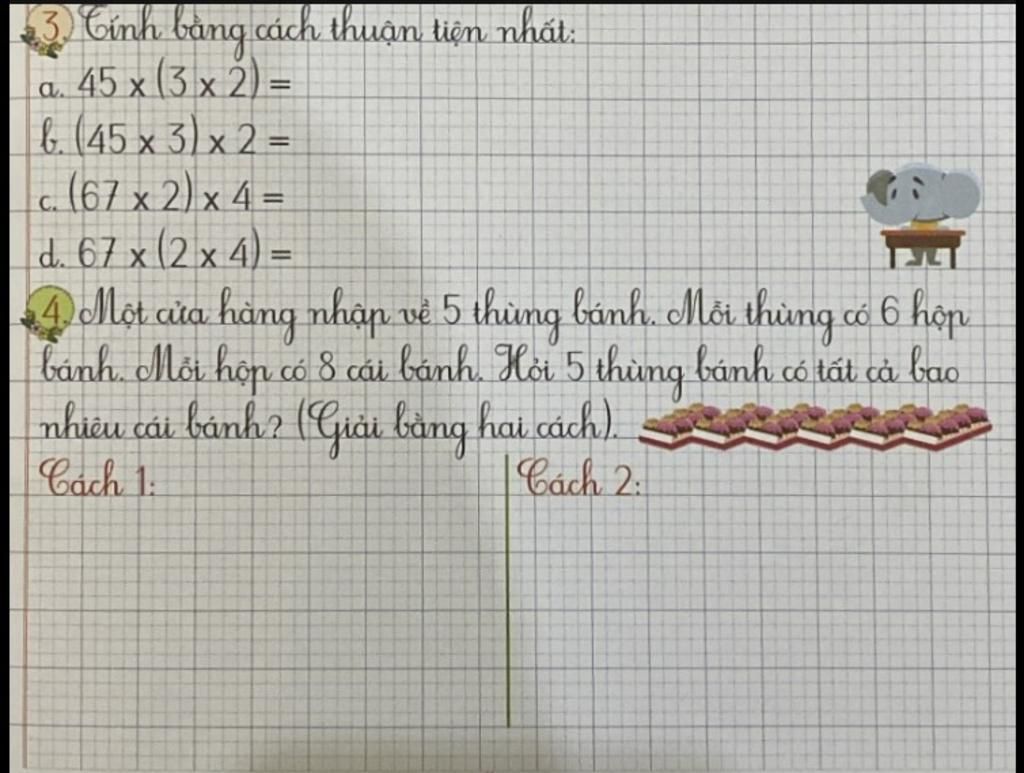 3 Tính bằng cách thuận tiện nhất:
a. 45 x (3 x 2) =
b. (45 x 3) x 2 =
c. (67 x 2) x 4 =
d. 67 x (2 x 4) =
4 Một cửa hàng nhập về 5 thùng bánh. Mỗi thùng có 6 hộp
bánh. Mỗi hộp có 8 cái bánh. Hỏi 5 thùng bánh có tất cả bao
nhiêu cái bánh? (Giải bằng hai cách).
Cách 1:
Cách 2: